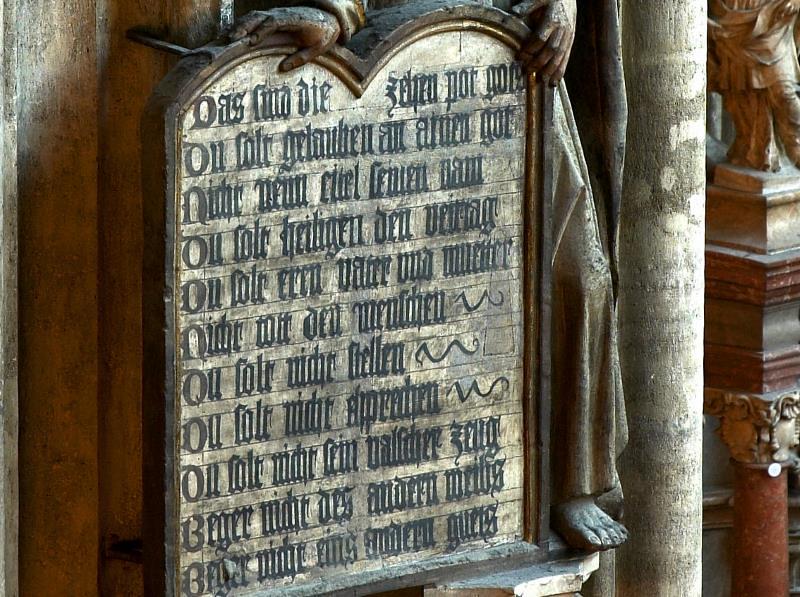 Das sind die zehen pot gots
Du solt gelauben an ainen got
Nicht nenn eitel seinen nam
Du solt heiligen den veirtag
Du solt eren vater und mueter
Nicht tött den menschen
Du solt nicht stellen
Du solt nicht eprechen
Du solt nicht sein valscher zeug
Beger nicht des andern weibs
Beger nicht eins andern guets